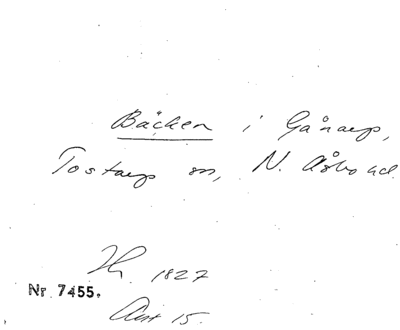 Bäcken i Gånarp,
Tostarp sn, N. Åsbo hd.
Hr. 1827
Nr 7455.
Akt 15.